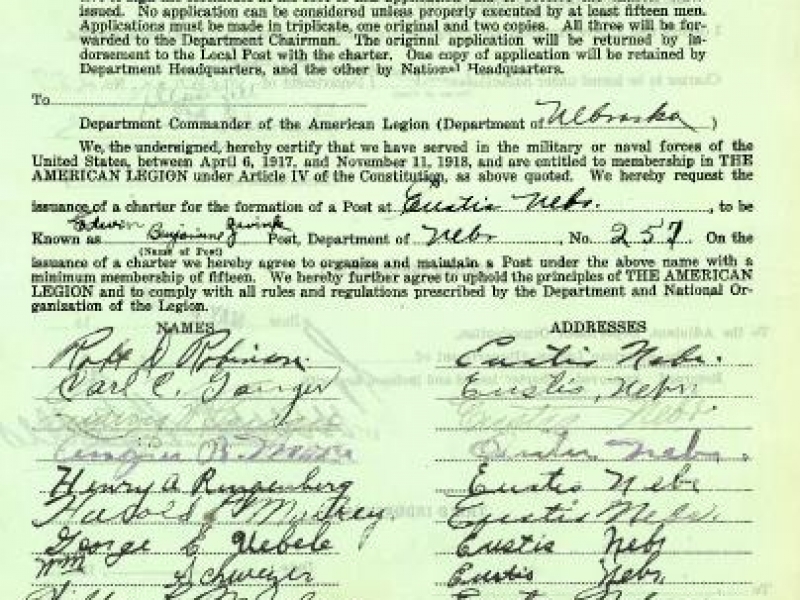 issued. No application can be considered unless properly executed by at least fifteen men.
Applications must be made in triplicate, one original and two copies. All three will be for-
warded to the Department Chairman. The original application will be returned by in-
dorsement to the Local Post with the charter. One copy of application will be retained by
Department Headquarters, and the other by National Headquarters.
To
Department Commander of the American Legion (Department of Nebraska )
We, the undersigned, hereby certify that we have served in the military or naval forces of the
United States, between April 6, 1917, and November 11, 1918, and are entitled to membership in THE
AMERICAN LEGION under Article IV of the Constitution, as above quoted. We hereby request the
issuance of a charter for the formation of a Post at Eustis Nebr. , to be
Edwin
Known as Benjamine Post, Department of Nebr , No. 257 On the
(Name of Post)
issuance of a charter we hereby agree to organize and maintain a Post under the above name with a
minimum membership of fifteen. We hereby further agree to uphold the principles of THE AMERICAN
LEGION and to comply with all rules and regulations prescribed by the Department and National Or-
ganization of the Legion.
NAMES ADDRESSES
Robinson Eustis Nebr.
Carl C. Eustis, Nebr
Eustis Nebr.
B. Eustis Nebr.
Henry A Ringenberg Eustis Nebr
Harold Eustis Nebr.
George E Uebele Eustis Nebr
Wm Schweizer Eustis Nebr.
Eustis Nebr